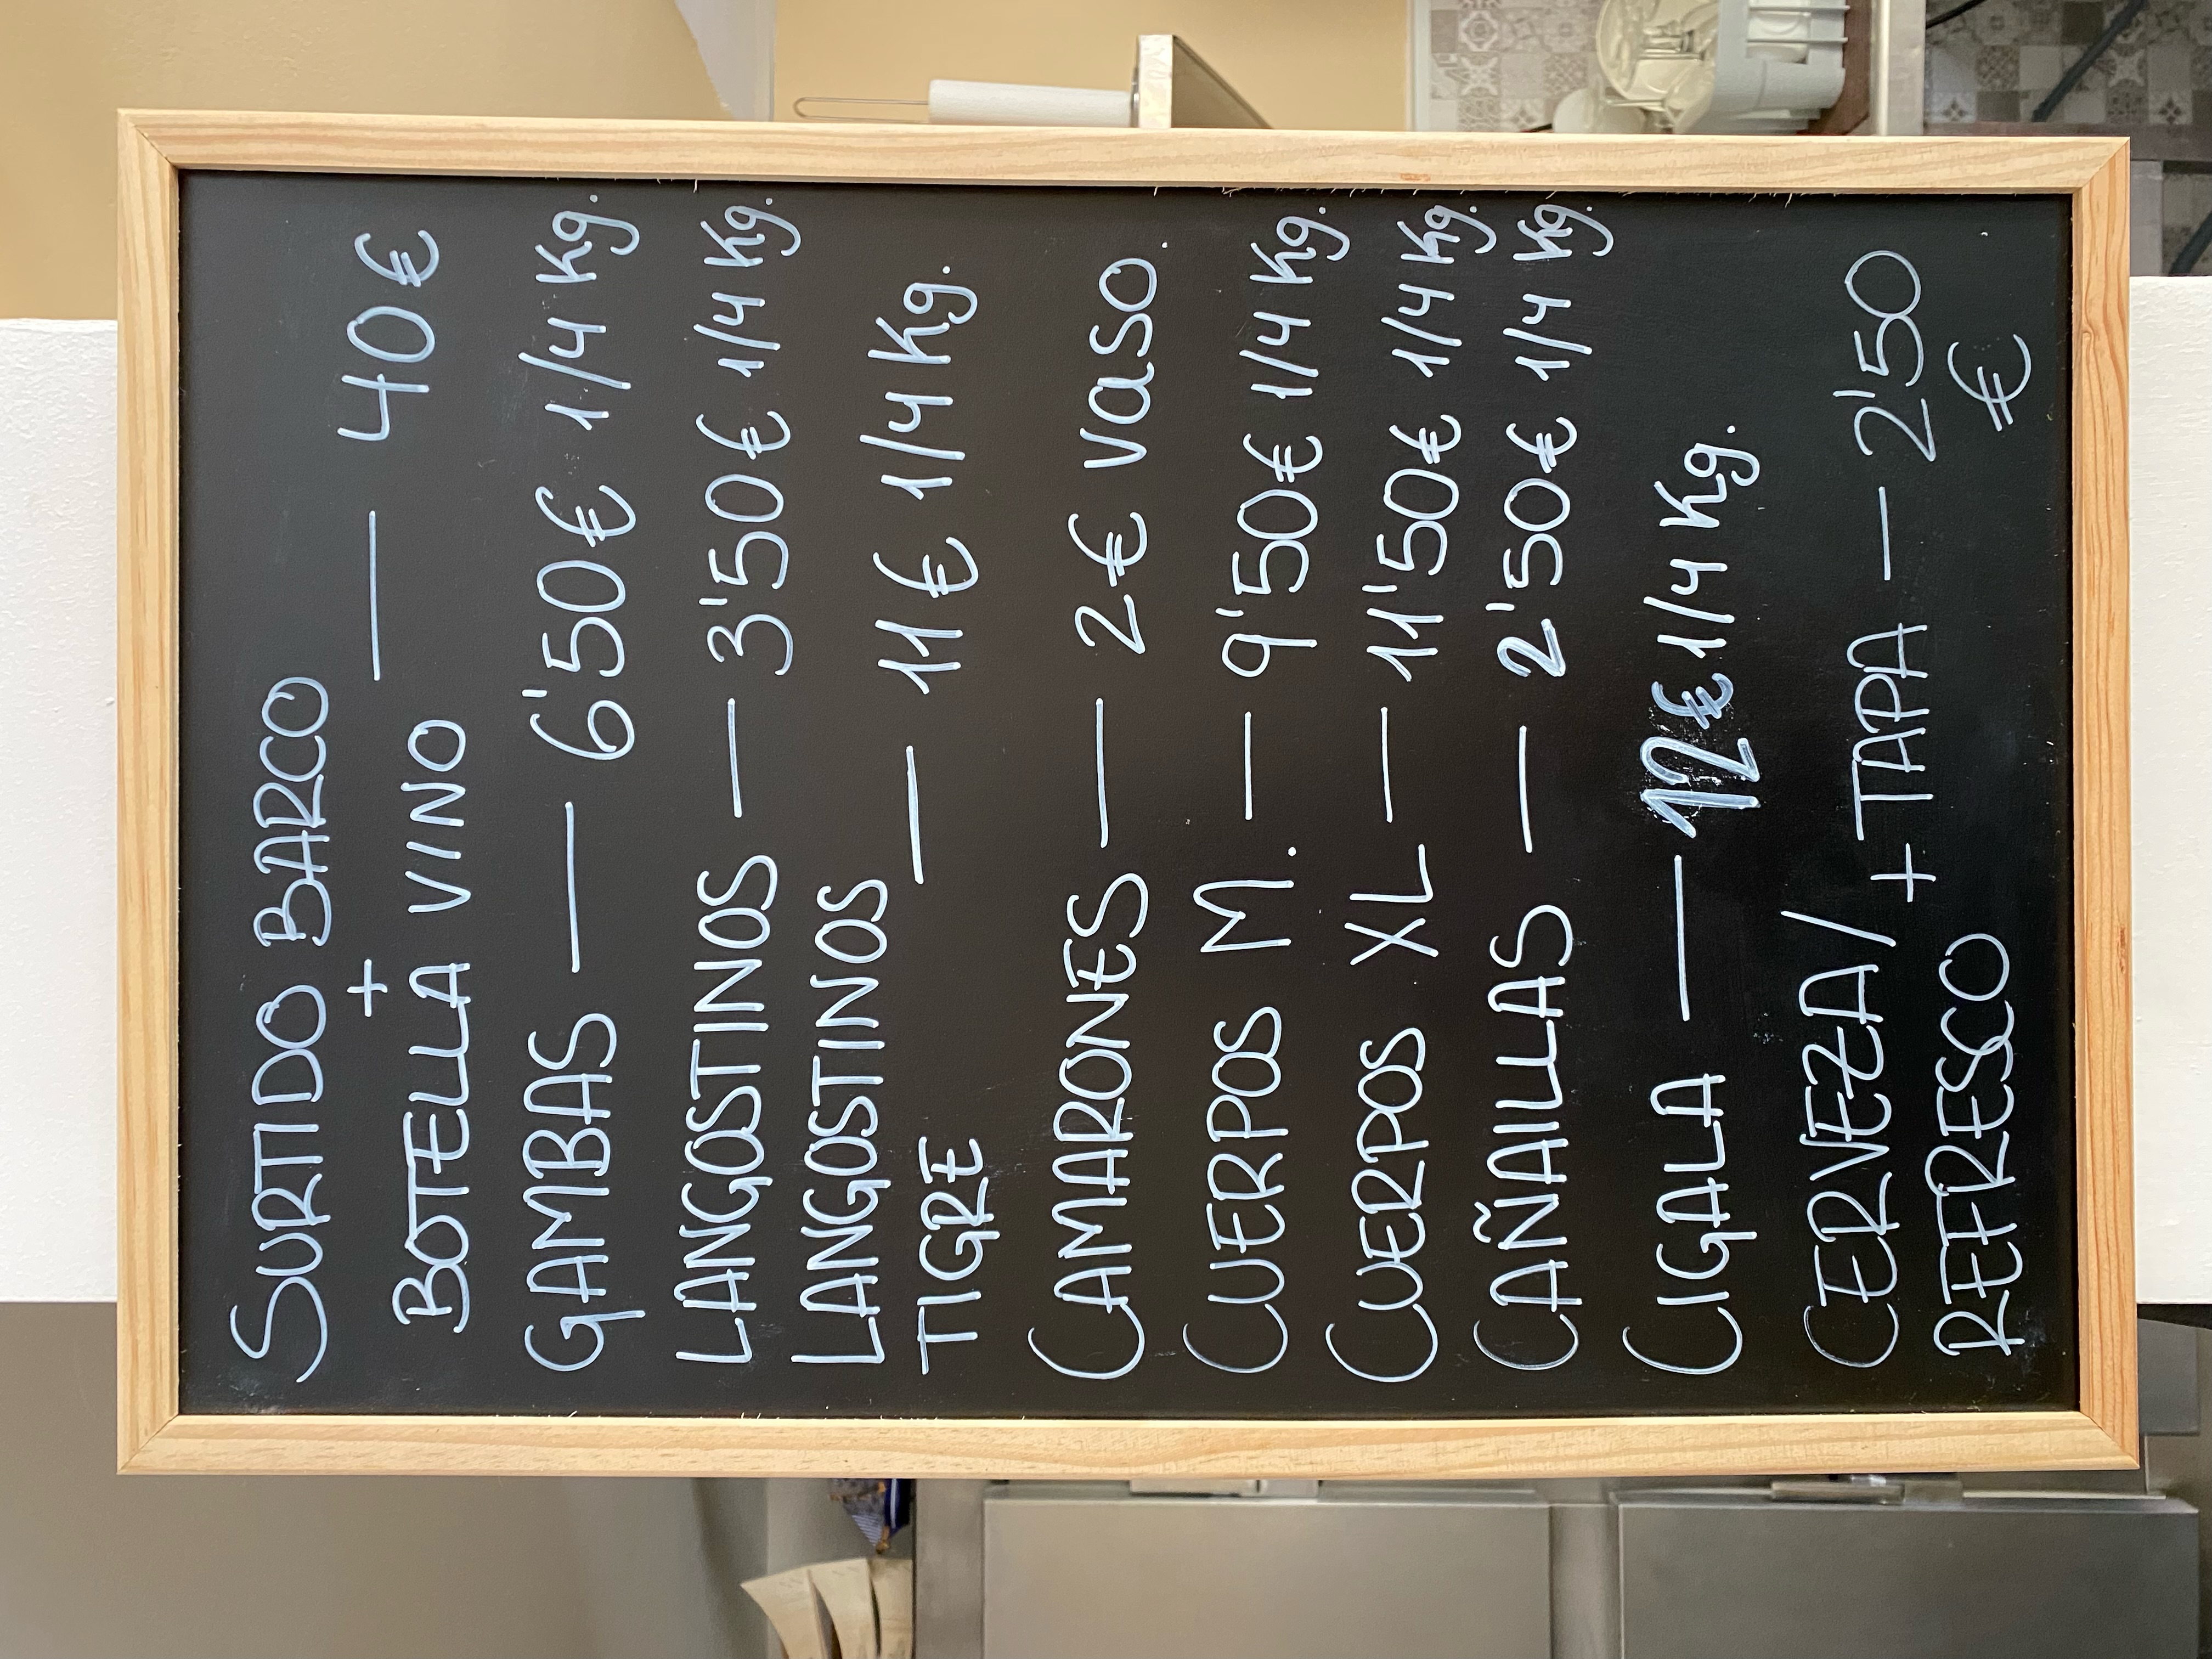 SURTIDO BARCO
+ — 40€
BOTELLA VINO
GAMBAS — 6'50€ 1/4 Kg.
LANGOSTINOS — 3'50€ 1/4 Kg.
LANGOSTINOS
TIGRE — 11€ 1/4 Kg.
CAMARONES — 2€ vaso.
CUERPOS M. — 9'50€ 1/4 Kg.
CUERPOS XL — 11'50€ 1/4 Kg.
CAÑAILLAS — 2'50€ 1/4 Kg.
CIGALA — 12€ 1/4 Kg.
CERVEZA/
REFRESCO + TAPA — 2'50
€